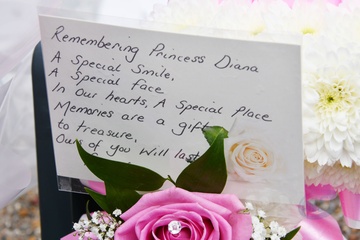 Remembering Princess Diana
A Special Smile,
A Special Face
In Our hearts, A Special Place
Memories are a gift
to treasure,
Ours of you Will last